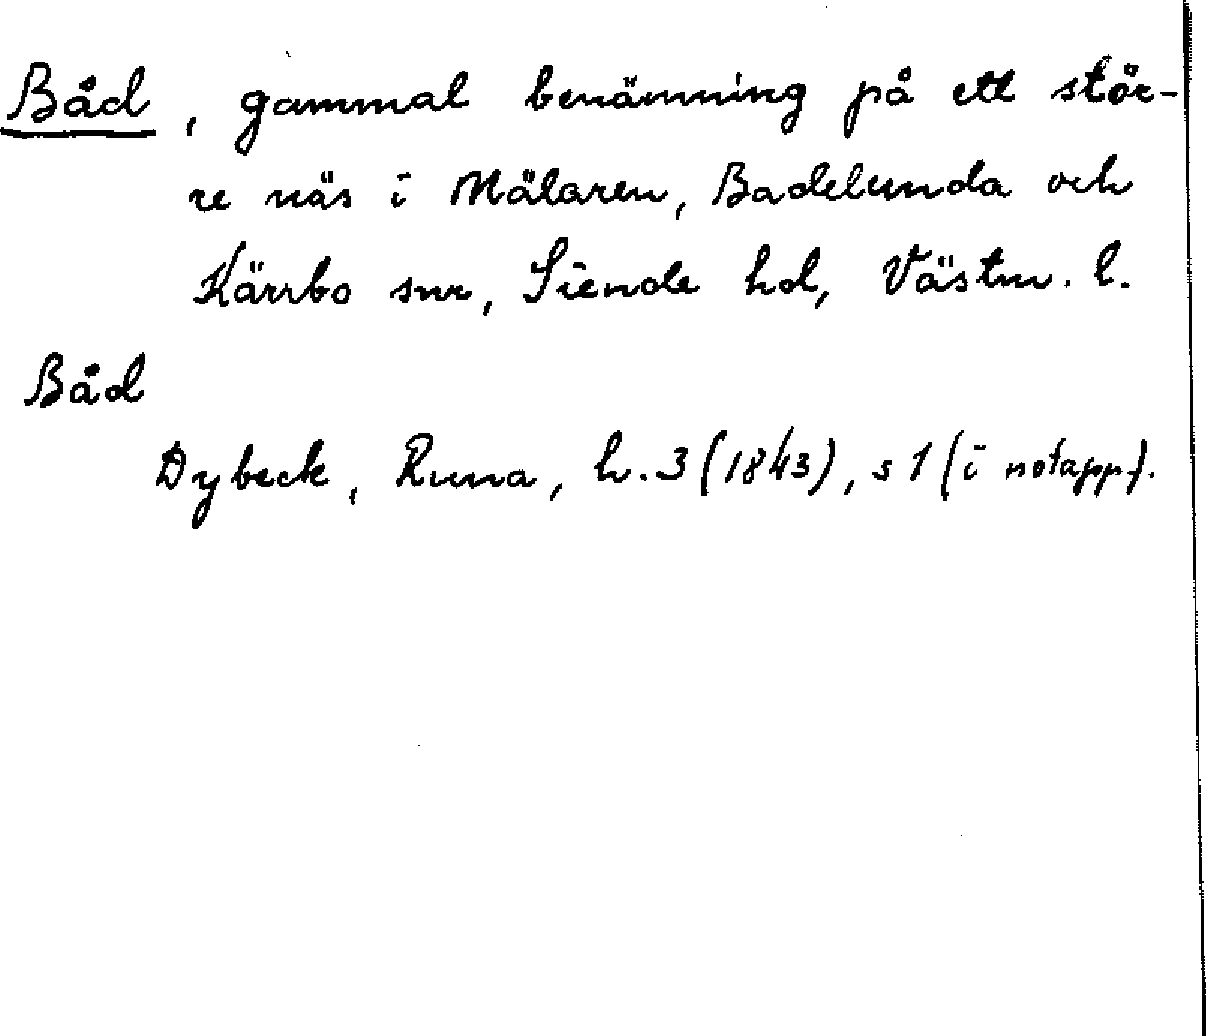 Båd, gammal benämning på ett stör-
re näs i Mälaren, Badelunda och
Kärrbo snr, Siende hd, Västm. l.
Båd
Dybeck, Runa, h. 3 (1843), s 1 (i notapp.).